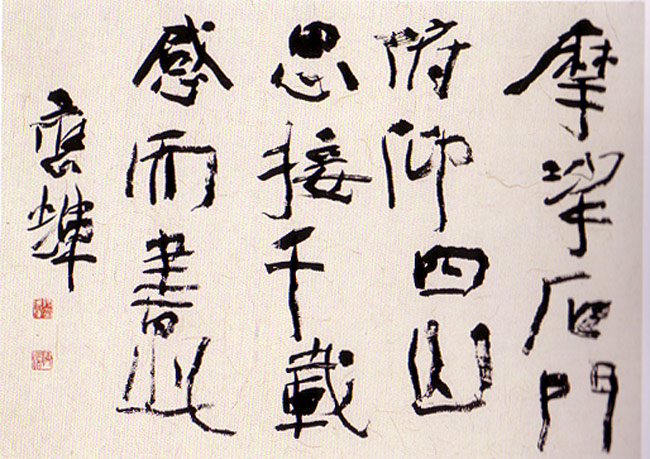 摩挲石門
俯仰四山
思接千載
感而書此
應輝